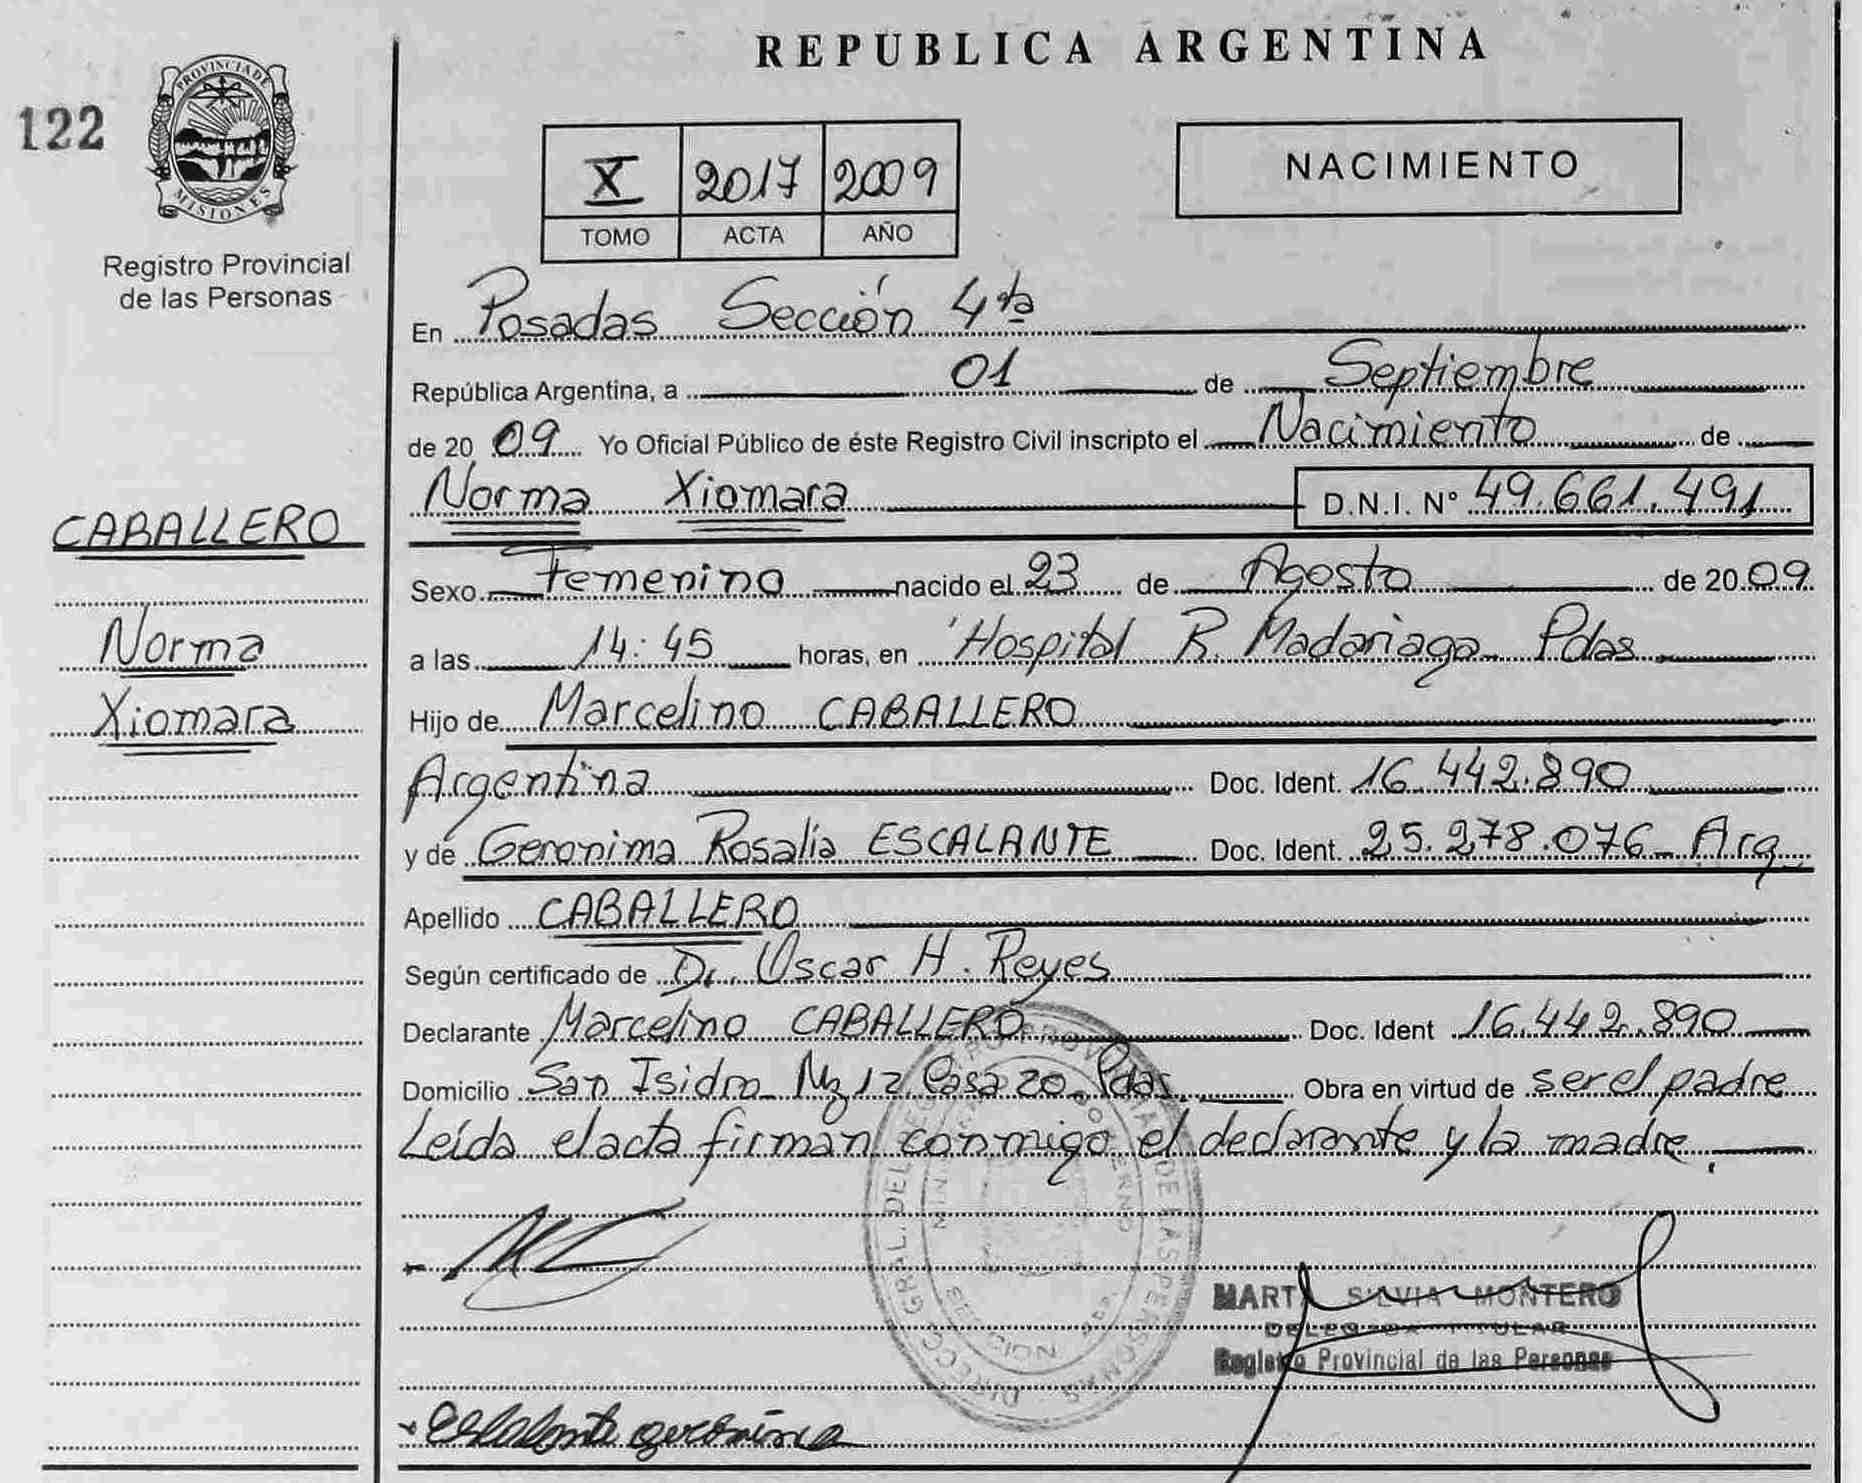 REPUBLICA ARGENTINA
122
PROVINCIA DE
MISIONES
Registro Provincial
de las Personas
X 2017 2009
TOMO ACTA AÑO
NACIMIENTO
En Posadas Sección 4ta
República Argentina, a 01 de Septiembre
de 20 09 Yo Oficial Público de éste Registro Civil inscripto el Nacimiento de
Norma Xiomara D.N.I. Nº 49.661.491
CABALLERO
Norma
Xiomara
Sexo Femenino nacido el 23 de Agosto de 20 09
a las 14:45 horas, en Hospital R. Madariaga Pdas
Hijo de Marcelino CABALLERO
Argentina Doc. Ident. 16.442.890
y de Geronima Rosalia ESCALANTE Doc. Ident. 25.278.076 - Arg
Apellido CABALLERO
Según certificado de Dr. Oscar H. Reyes
Declarante Marcelino CABALLERO Doc. Ident 16.442.890
Domicilio San Isidro Mz 12 Casa 20 - Pdas. Obra en virtud de ser el padre
Leída el acta firman conmigo el declarante y la madre.
MARTA SILVIA MONTERO
DELEGADA TITULAR
Registro Provincial de las Personas
DIRECC. GRAL. DEL REGISTRO PROVINCIAL DE LAS PERSONAS
Escalante geronima